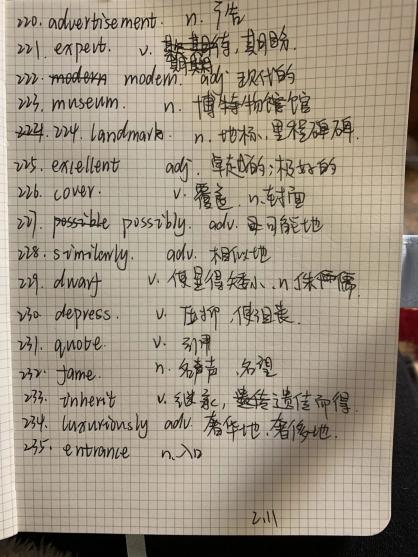 220. advertisement. n. 广告
221. expect. v. 期待, 期盼
222. modern adj 现代的
223. museum. n. 博物馆
224. landmark. n. 地标, 里程碑
225. exellent adj. 卓越的; 极好的
226. cover. v. 覆盖. n. 封面
227. possible possibly. adv. 可能地
228. similarly. adv. 相似地
229. dwarf v. 使显得矮小. n. 侏儒.
230. depress. v. 压抑, 使沮丧.
231. quote. v. 引用
232. fame. n. 名声, 名望
233. inherit v. 继承, 遗传而得.
234. luxuriously adv. 奢华地, 奢侈地.
235. entrance n. 入口
2.11